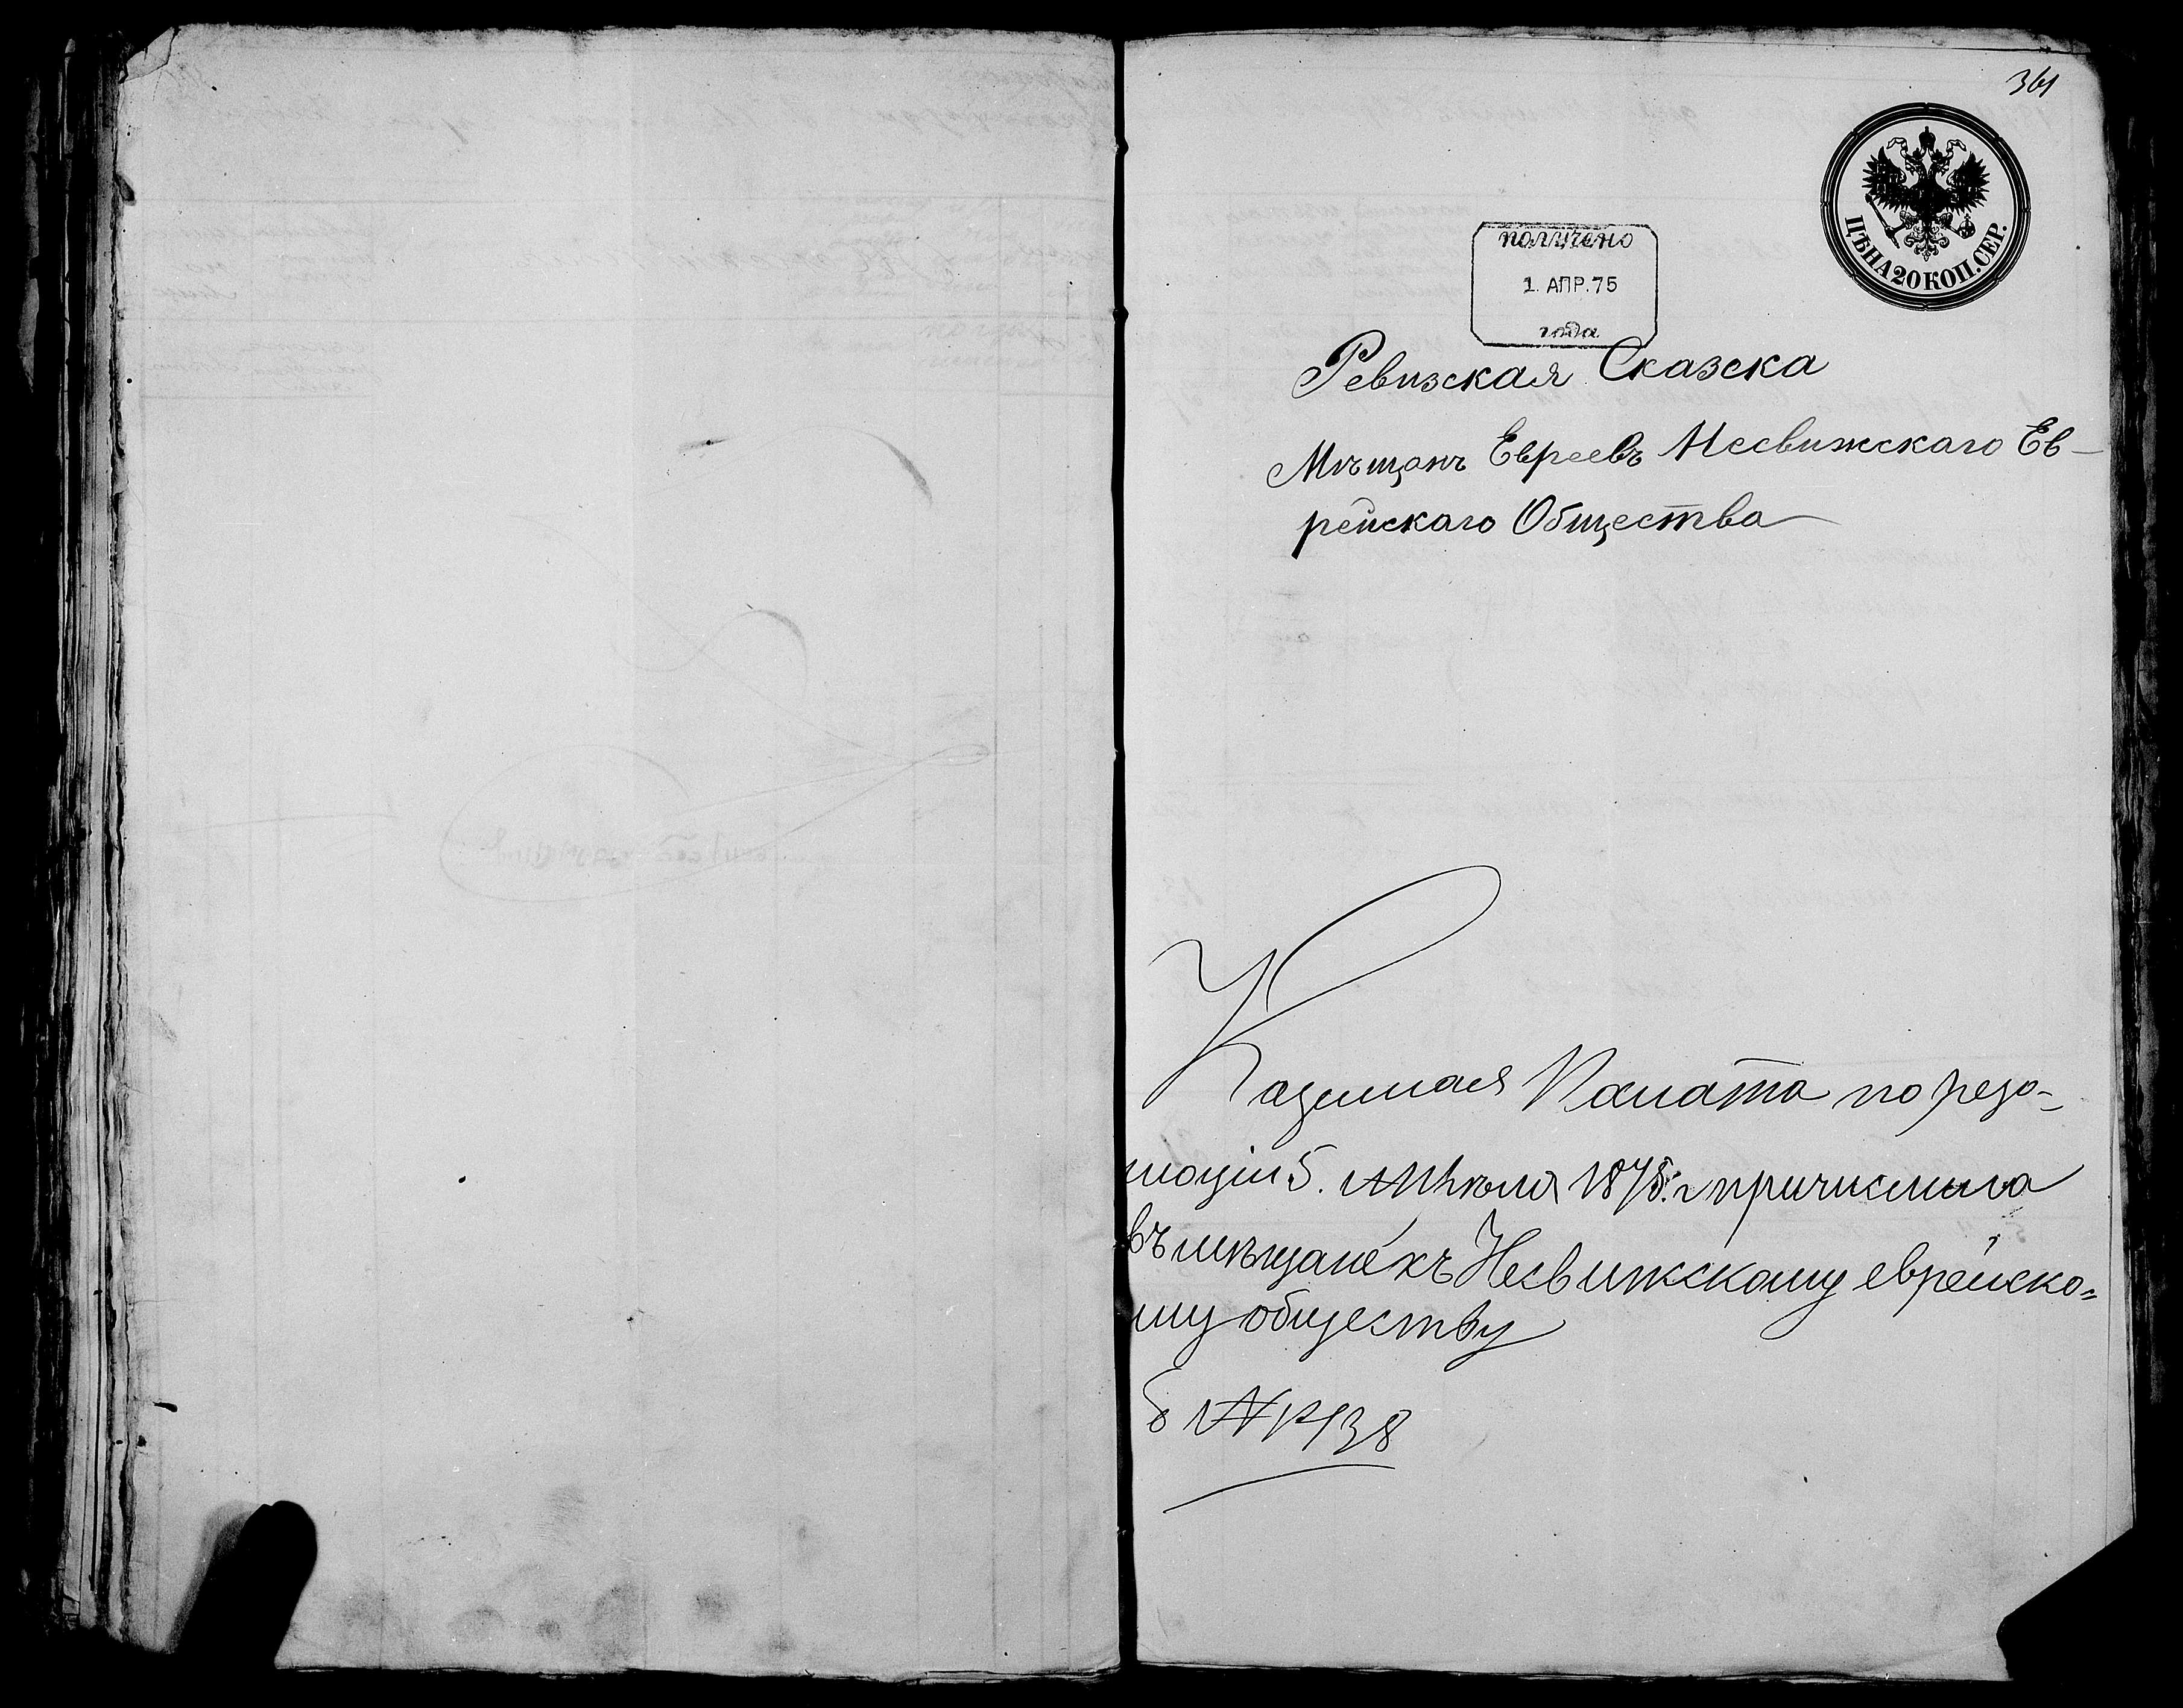 361
ЦѢНА 20 КОП. СЕР.
получено
1. АПР. 75
года
Ревизская Сказска
Мѣщанъ Евреевъ Несвижскаго Ев-
рейскаго Общества
Казенная Палата по резо-
люціи 5. Апрѣля 1875. г причислила
въ мѣщане къ Несвижскому еврейско=
му обществу